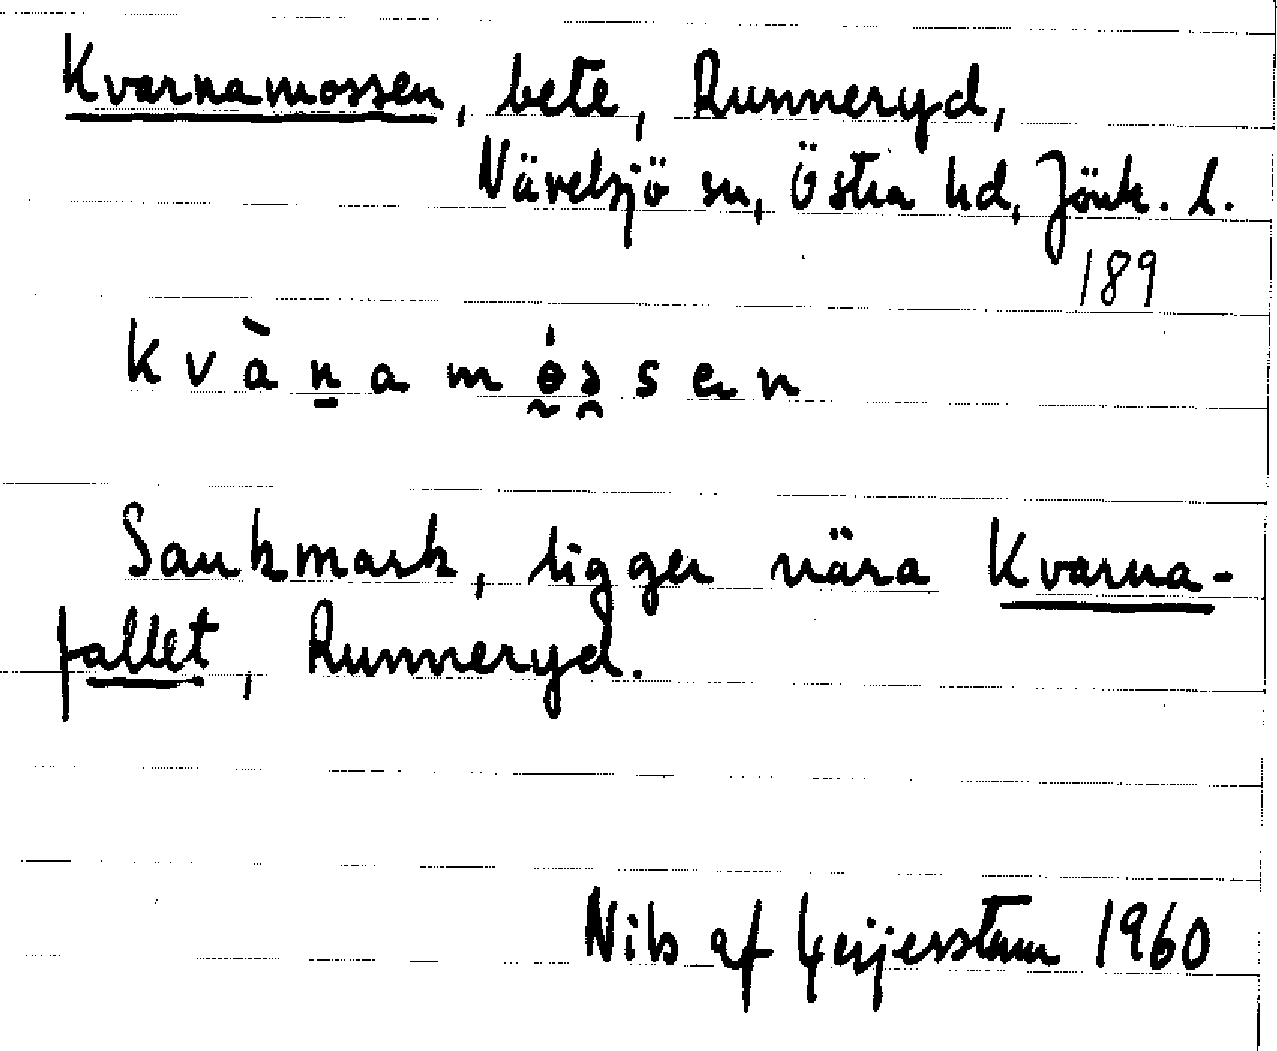 Kvarnamossen, bete, Runneryd,
Nävelsjö sn, Östra hd, Jönk. l.
189
kvàn̠amɵ̰́ə̯sen
Sankmark, ligger nära Kvarna-
fallet, Runneryd.
Nils af Geijerstam 1960